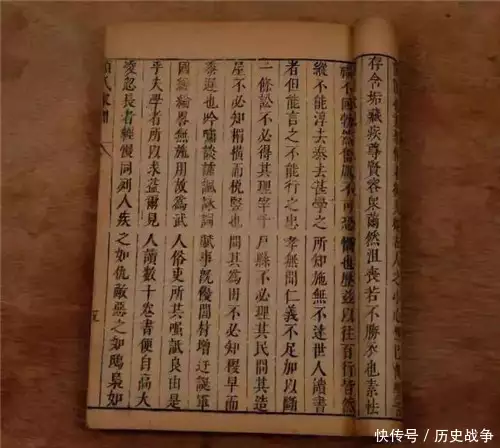 存含垢藏疾尊賢容衆薾然沮喪若不勝衣也素怯
福不回勃然奮厲不可恐懾也歷茲以往百行皆然
縱不能淳去泰去甚學之所知施無不達世人讀書
者但能言之不能行之忠孝無聞仁義不足加以斷
一條訟不必得其理宰千戶縣不必理其民問其造
屋不必知楣橫而梲豎也問其為田不必知稷早而
黍遲也吟嘯談謔諷詠辭賦事既優閒材增迂誕軍
國經綸畧無施用故為武人俗吏所共嗤詆良由是
乎夫學者所以求益爾見人讀數十卷書便自高大
凌忽長者輕慢同列人疾之如仇敵惡之如鴟梟如
顏氏家訓
五
快传号 / 历史战争